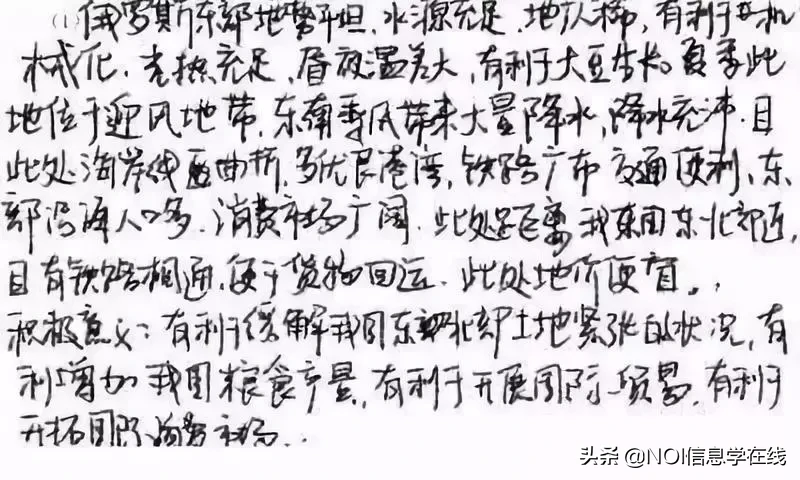 (1)俄罗斯东部地势平坦,水源充足,地广人稀,有利于机
械化,光热充足,昼夜温差大,有利于大豆生长。夏季此
地位于迎风地带,东南季风带来大量降水,降水充沛.且
此处海岸线曲折,多优良港湾,铁路广布交通便利、东
部沿海人口多.消费市场广阔.此处距离我国东北部近,
且有铁路相通,便于货物回运.此处地价便宜。
积极意义:有利于缓解我国东北部土地紧张的状况,有
利增加我国粮食产量,有利于开展国际贸易,有利于
开拓国际消费市场..
头条 @NOI信息学在线